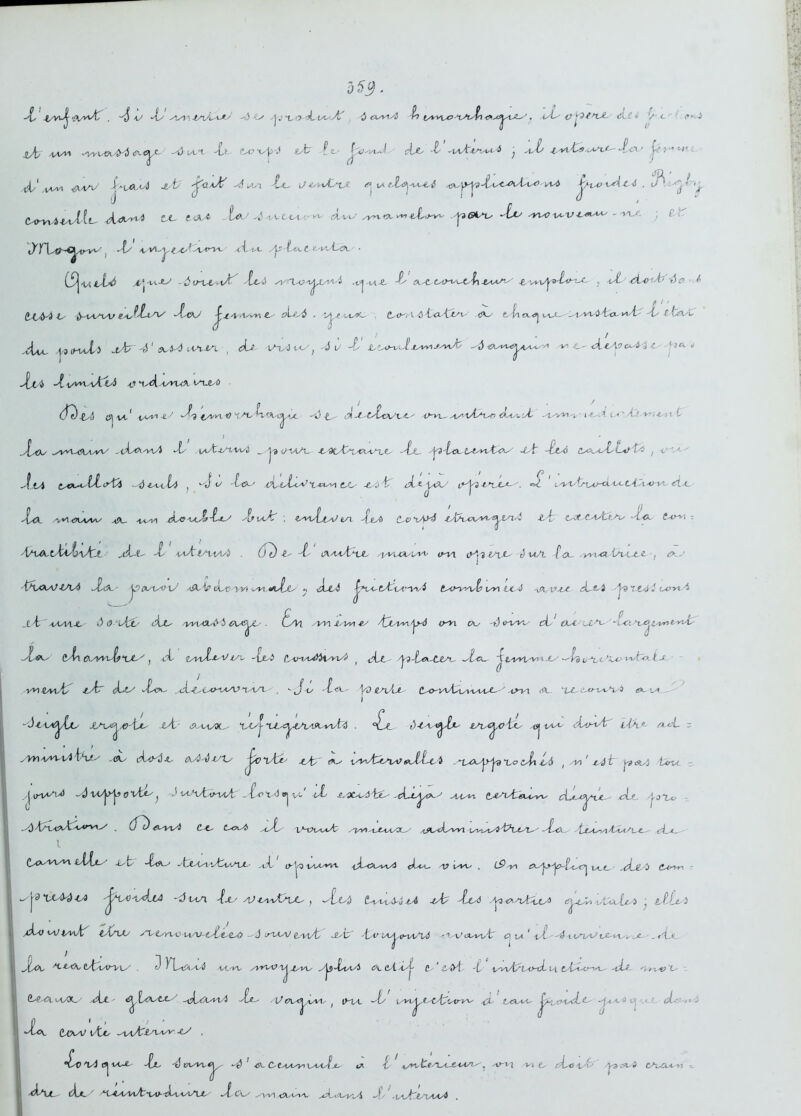 359.
l'enfant. Si l'inertie se produit, dans l'hémorrhagie, il opère des frictions
et un massage sur le corps et le fond de l'utérus ; il entoure la femme
d'un air frais et fait sur le ventre quelques applications froides. Rigby
conseille dans ce cas la succion du mamelon par le nouveau-né ; et
Mojon, l'injection du placenta.
Quels que soient les moyens que l'accoucheur emploie, il doit sans
cesse surveiller la femme et les yeux, constater à chaque instant l'état
du pouls et s'assurer, de visu, si l'écoulement sanguin ne dépasse pas
les limites ordinaires.
Dès qu'une hémorrhagie se déclare, on introduit immédiatement
la main dans l'utérus pour extraire le placenta et les caillots, ou
les caillots seuls, si la délivrance est déjà opérée. L'introduction de
la main a un double but : enlever les corps étrangers et exciter la con-
tractilité de l'utérus. De l'autre main on opère sur la matrice, à
travers la paroi abdominale, des frictions combinées avec des pressions
et une sorte de massage. En même temps on a soin d'aérer largement
la chambre, d'enlever les coussins, de placer la femme horizontale-
ment et de la découvrir. Si la perte continue on a recours au
seigle ergoté et aux réfrigérants. Le seigle ergoté qui doit être ad-
ministré à dose assez forte et à intervalles rapprochés, n'est pas tou-
jours supporté, surtout lorsqu'il existe déjà un certain degré de pro-
stration. Dans ce cas il vaut mieux administrer la teinture de
cannelle et la teinture d'opium dans du vin. On applique des com-
presses froides sur le ventre, les cuisses et les parties génitales ; elles
doivent être renouvelées souvent et toujours avant qu'il survienne de
la réaction. Mais un moyen plus actif c'est l'introduction de mor-
ceaux de glace dans le vagin, ou l'injection d'eau froide jusque dans
la cavité utérine.
Lorsque le sang s'accumule à l'intérieur, on ne doit pas crain-
dre de réintroduire la main dans l'utérus.